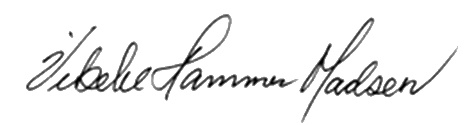 Vibeke Hammer Madsen